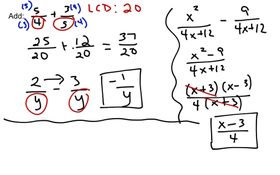 (5) 5/4 + 3/5 (4) LCD: 20
Add: (5) (4)
25/20 + 12/20 = 37/20
2/y → 3/y -1/y
x²/4x+12 - 9/4x+12
x²-9/4x+12
(x+3)(x-3)/4(x+3)
x-3/4